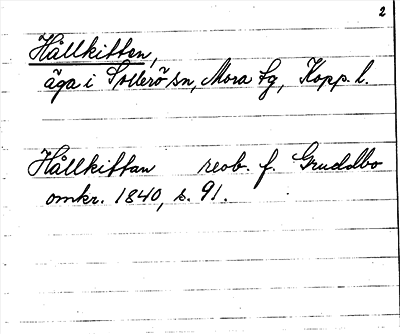 2
Hållkitten,
äga i Sollerö sn, Mora tg, Kopp. l.
Hållkittan reob. f. Gruddbo
omkr. 1840, s. 91.